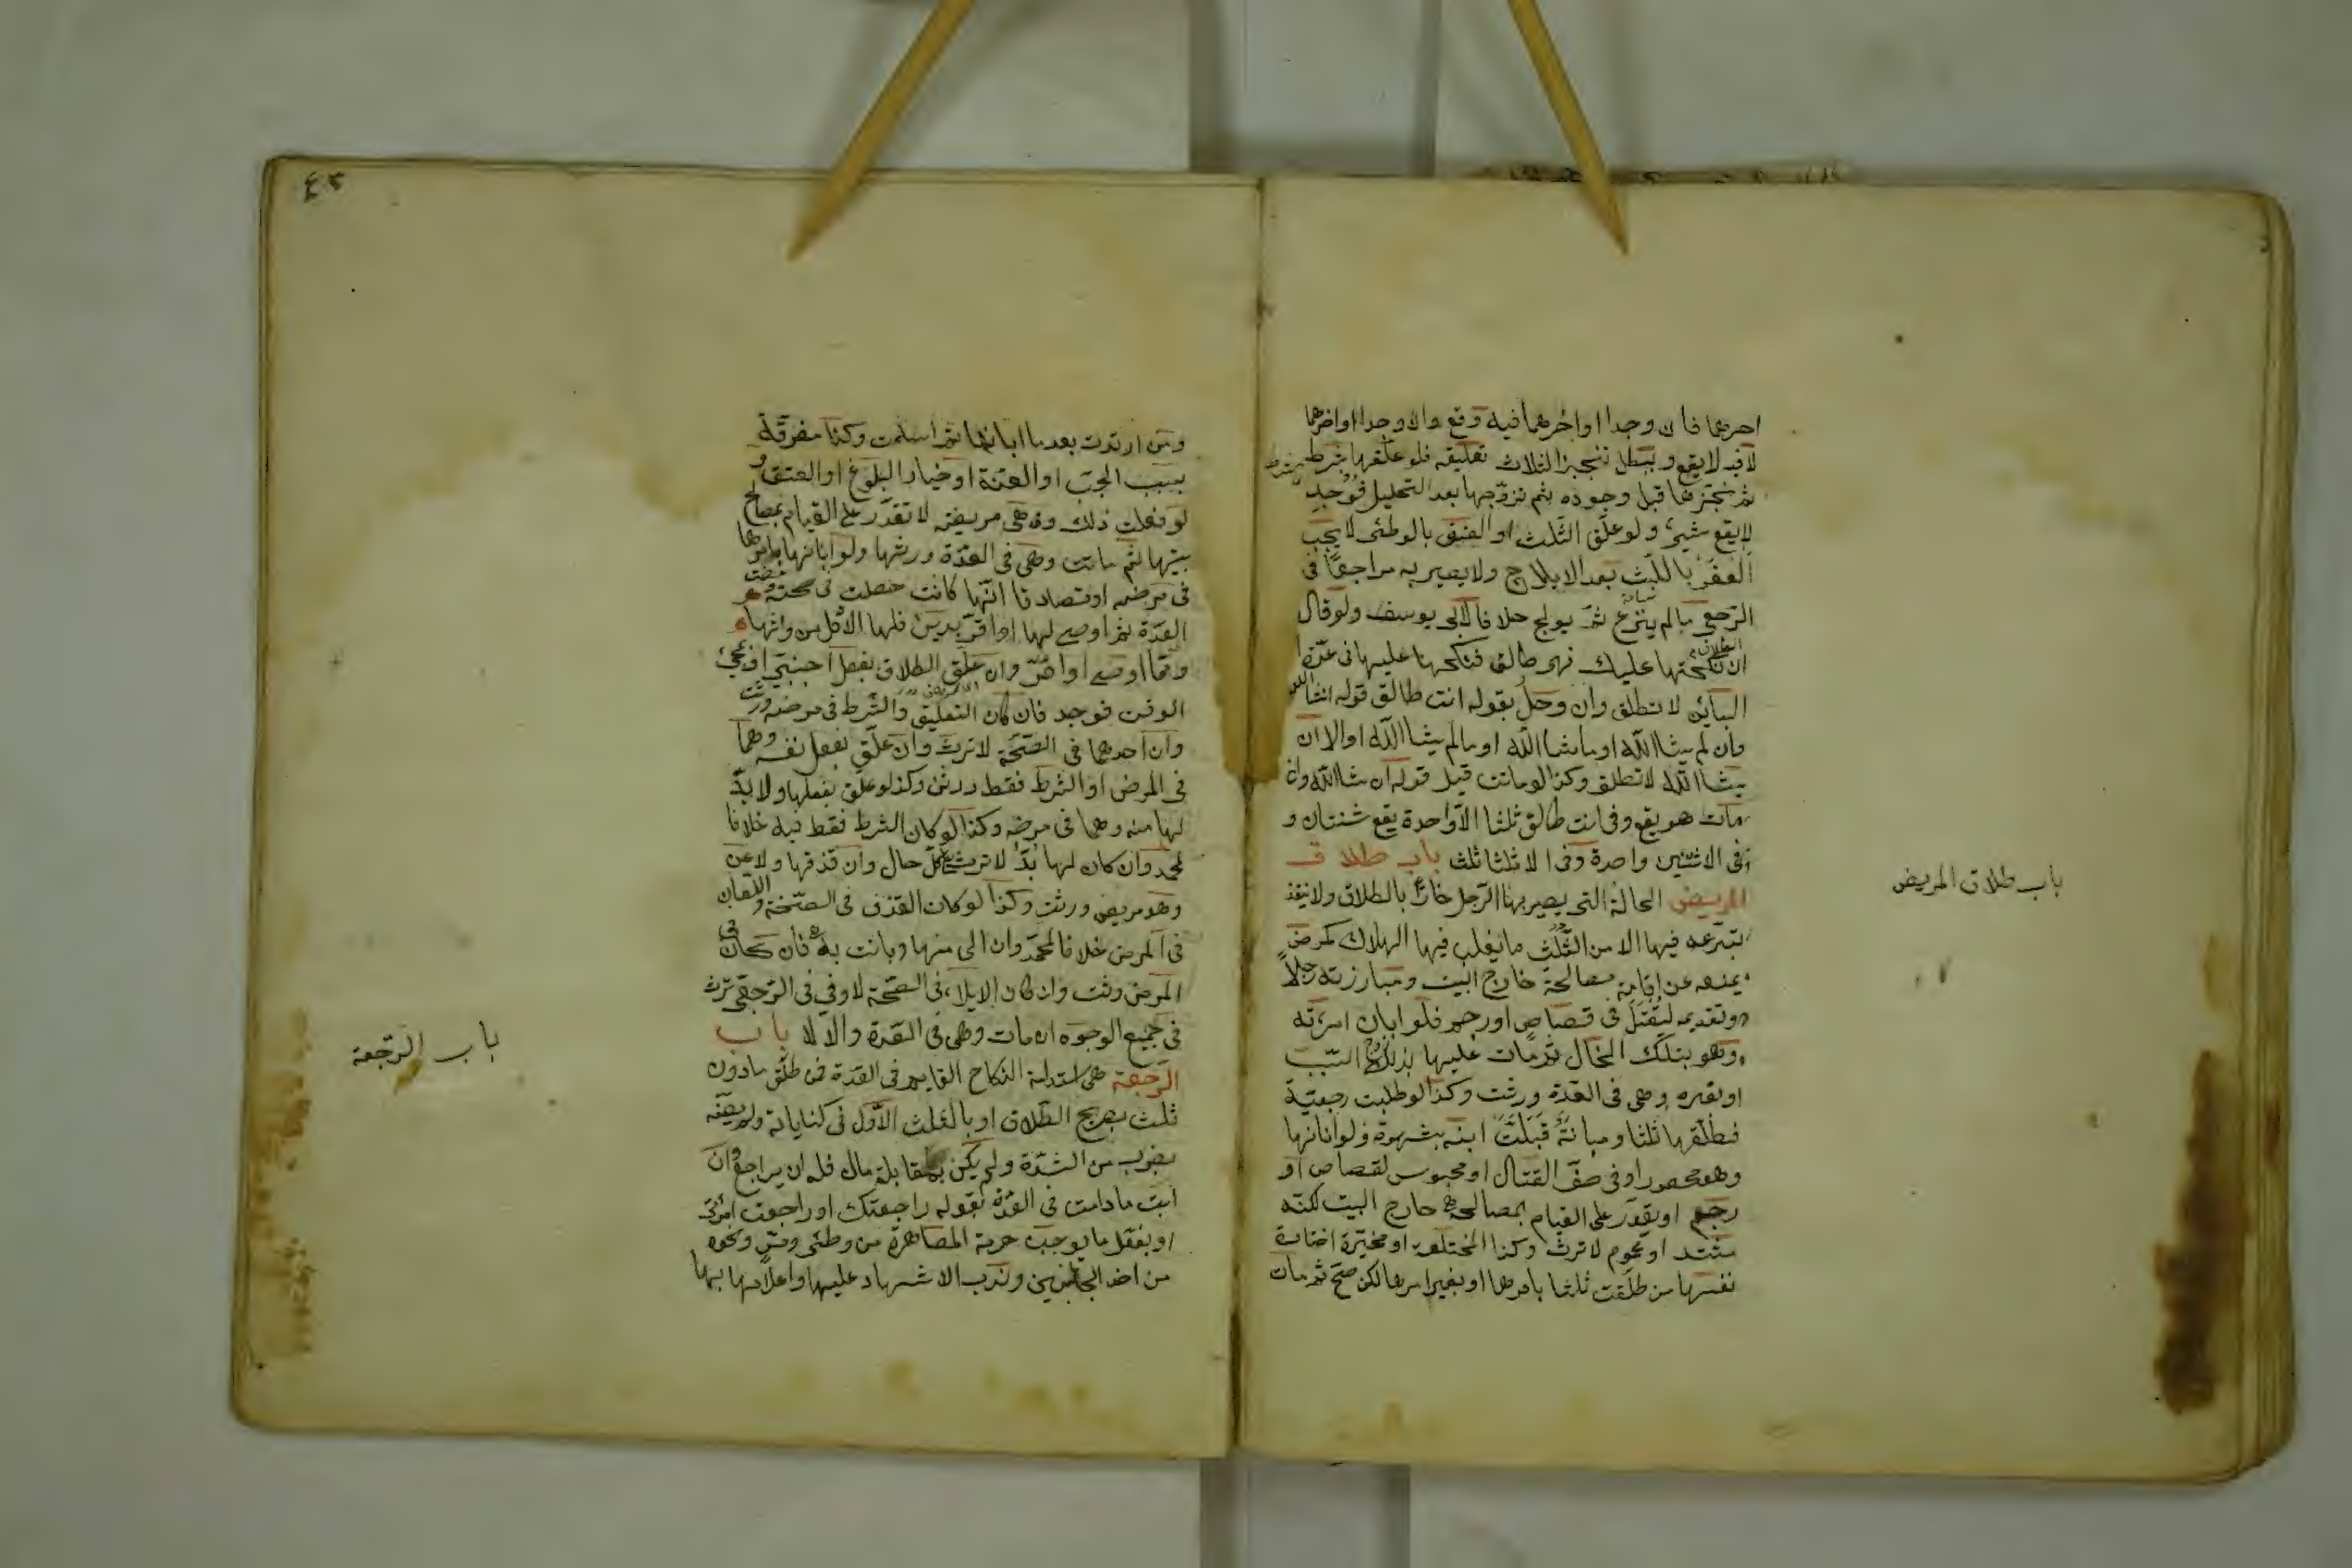 احدهما فان وجدا او اخرهما فيه وقع والا وجدا او اخرهما
لا فيه لا يقع ويبطل تنجيز الثلاث تعليقه فلو علقها بشرط
ثم نجزها قبل وجوده ثم تزوجها بعد التحليل فوجد
لا يقع شيئ ولو علق الثلث او العتق بالوطئ لا يجب
العقر باللبث بعد الايلاج ولا يصير به مراجعا في
الرجعي ما لم ينزع ثم يولج خلافا لابى يوسف ولو قال
ان نكحتها عليك فهى طالق فنكحها عليها في عدة
البائن لا تطلق وان وصل بقوله انت طالق قوله انشا الله
وان لم يشا الله او ما شا الله او ما لم يشا الله او الا ان
يشا الله لا تطلق وكذا لو ماتت قبل قوله ان شا الله وان
مات هو يقع وفى انت طالق ثلثا الا واحدة يقع ثنتان و
فى الا ثنتين واحدة وفى الا ثلاثا ثلث باب طلاق
المريض الحالة التى يصير بها الرجل فارًّا بالطلاق ولا ينفذ
تبرعه فيها الا من الثلث ما يغلب فيها الهلاك كمرض
يمنعه عن اقامة مصالحه خارج البيت ومبارزته رجلا
وتقديمه ليقتل فى قصاص او رجم فلو ابان امرته
وهو بتلك الحال ثم مات عليها بذلك السبب
او بغيره وهى فى العدة ورثت وكذا لو طلبت رجعية
فطلقها ثلثا ومبانة قبلت ابنه بشهوة ولو ابانها
وهو محصور او فى صف القتال او محبوس لقصاص او
رجم او يقدر على القيام بمصالحه خارج البيت لكنه
مشتد او محموم لا ترث وكذا المختلعة او مخيرة اختارت
نفسها من طلقت ثلثا بامرها او بغير امرها لكن صح ثم مات
باب طلاق المريض
٤٣
ومن ارتدت بعدما ابانها ثم اسلمت وكذا مفرقة
بسبب الجب او العنة او خيار البلوغ او العتق و
لو فعلت ذلك وهى مريضة لا تقدر على القيام بمصالح
بيتها ثم ماتت وهى فى العدة ورثها ولو ابانها بامرها
فى مرضه او تصادقا انها كانت حصلت فى صحته ومضت
العدة ثم اوصى لها او اقر بدين فلها الاقل من ارثها
ومما اوصى او اقر وان علق الطلاق بفعل اجنبى او بمجئ
الوقت فوجد فان كان التعليق والشرط فى مرضه ورثت
وان احدهما فى الصحة لا ترث وان علق بفعل نفسه وهما
فى المرض او الشرط فقط ورثت وكذا لو علق بفعلها ولا بد
لها منه وهما فى مرضه وكذا لو كان الشرط فقط فيه خلافا
لمحمد وان كان لها بد لا ترث على كل حال وان قذفها ولاعن
وهو مريض ورثت وكذا لو كان القذف فى الصحة واللعان
فى المرض خلافا لمحمد وان الى منها وبانت به فان كان فى
المرض ورثت وان كان الايلاء فى الصحة لا وفى الرجعى ترث
فى جميع الوجوه ان مات وهى فى العدة والا لا باب
الرجعة هى استدامة النكاح القايم فى العدة فمن طلق ما دون
ثلث بصريح الطلاق او بالثلث الاول فى كناياته ولم يصفه
بضرب من الشدة ولم يكن بمقابلة مال فله ان يراجع وان
ابت ما دامت فى العدة بقوله راجعتك او راجعت امرتى
او بفعل ما يوجب حرمة المصاهرة من وطئ ومس ونحوه
من احد الجانبين وندب الاشهاد عليها واعلامها بها
باب الرجعة